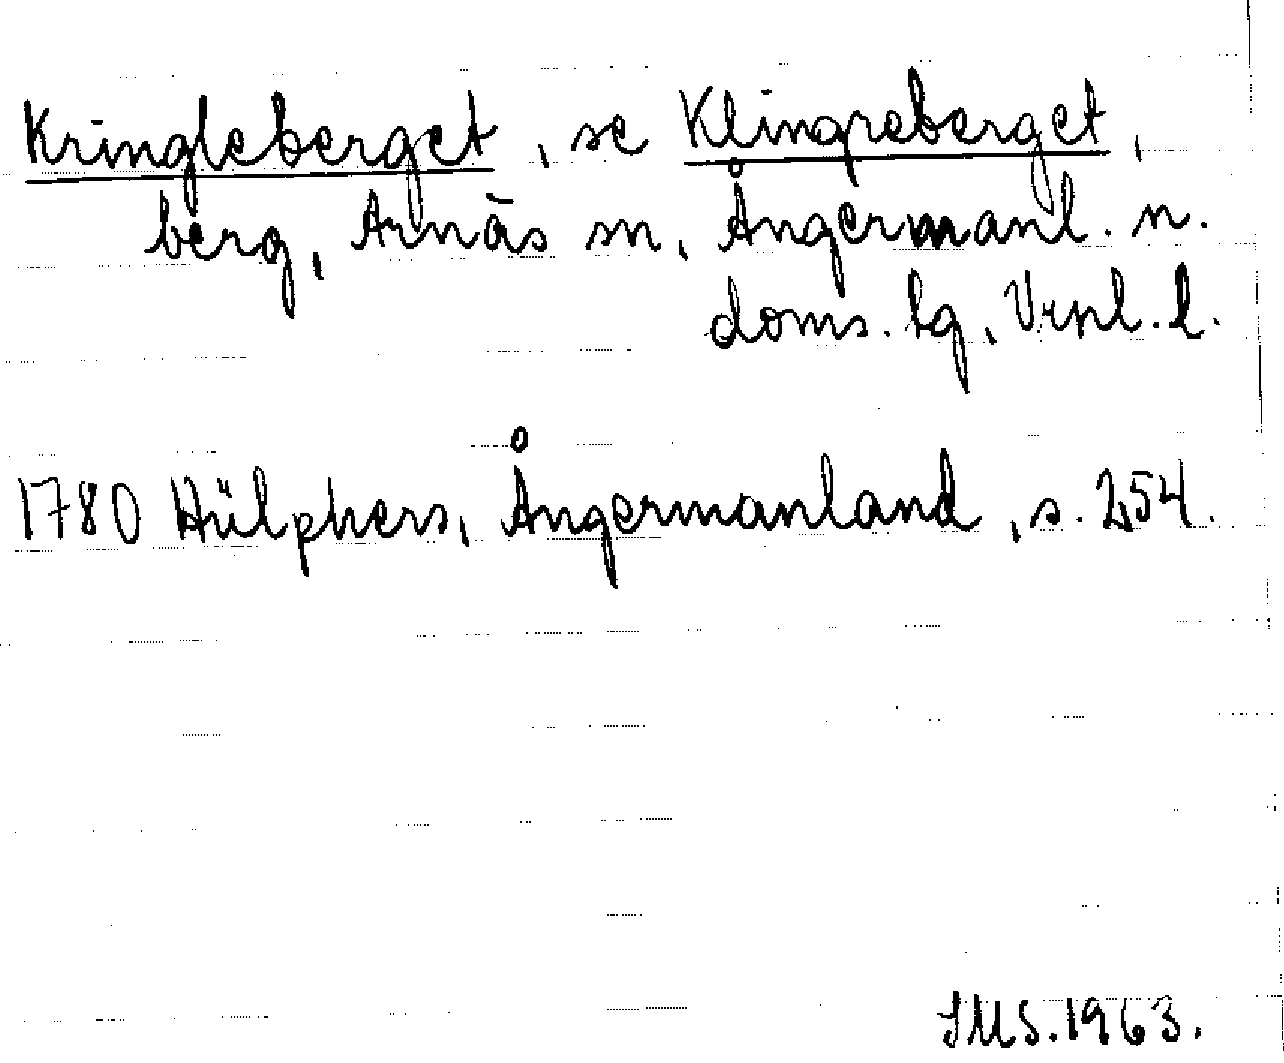 Kringleberget, se Klingreberget,
berg, Arnäs sn, Ångermanl. n.
doms. lg, Vrnl. l.
1780 Hülphers, Ångermanland, s. 254.
JMS. 1963.